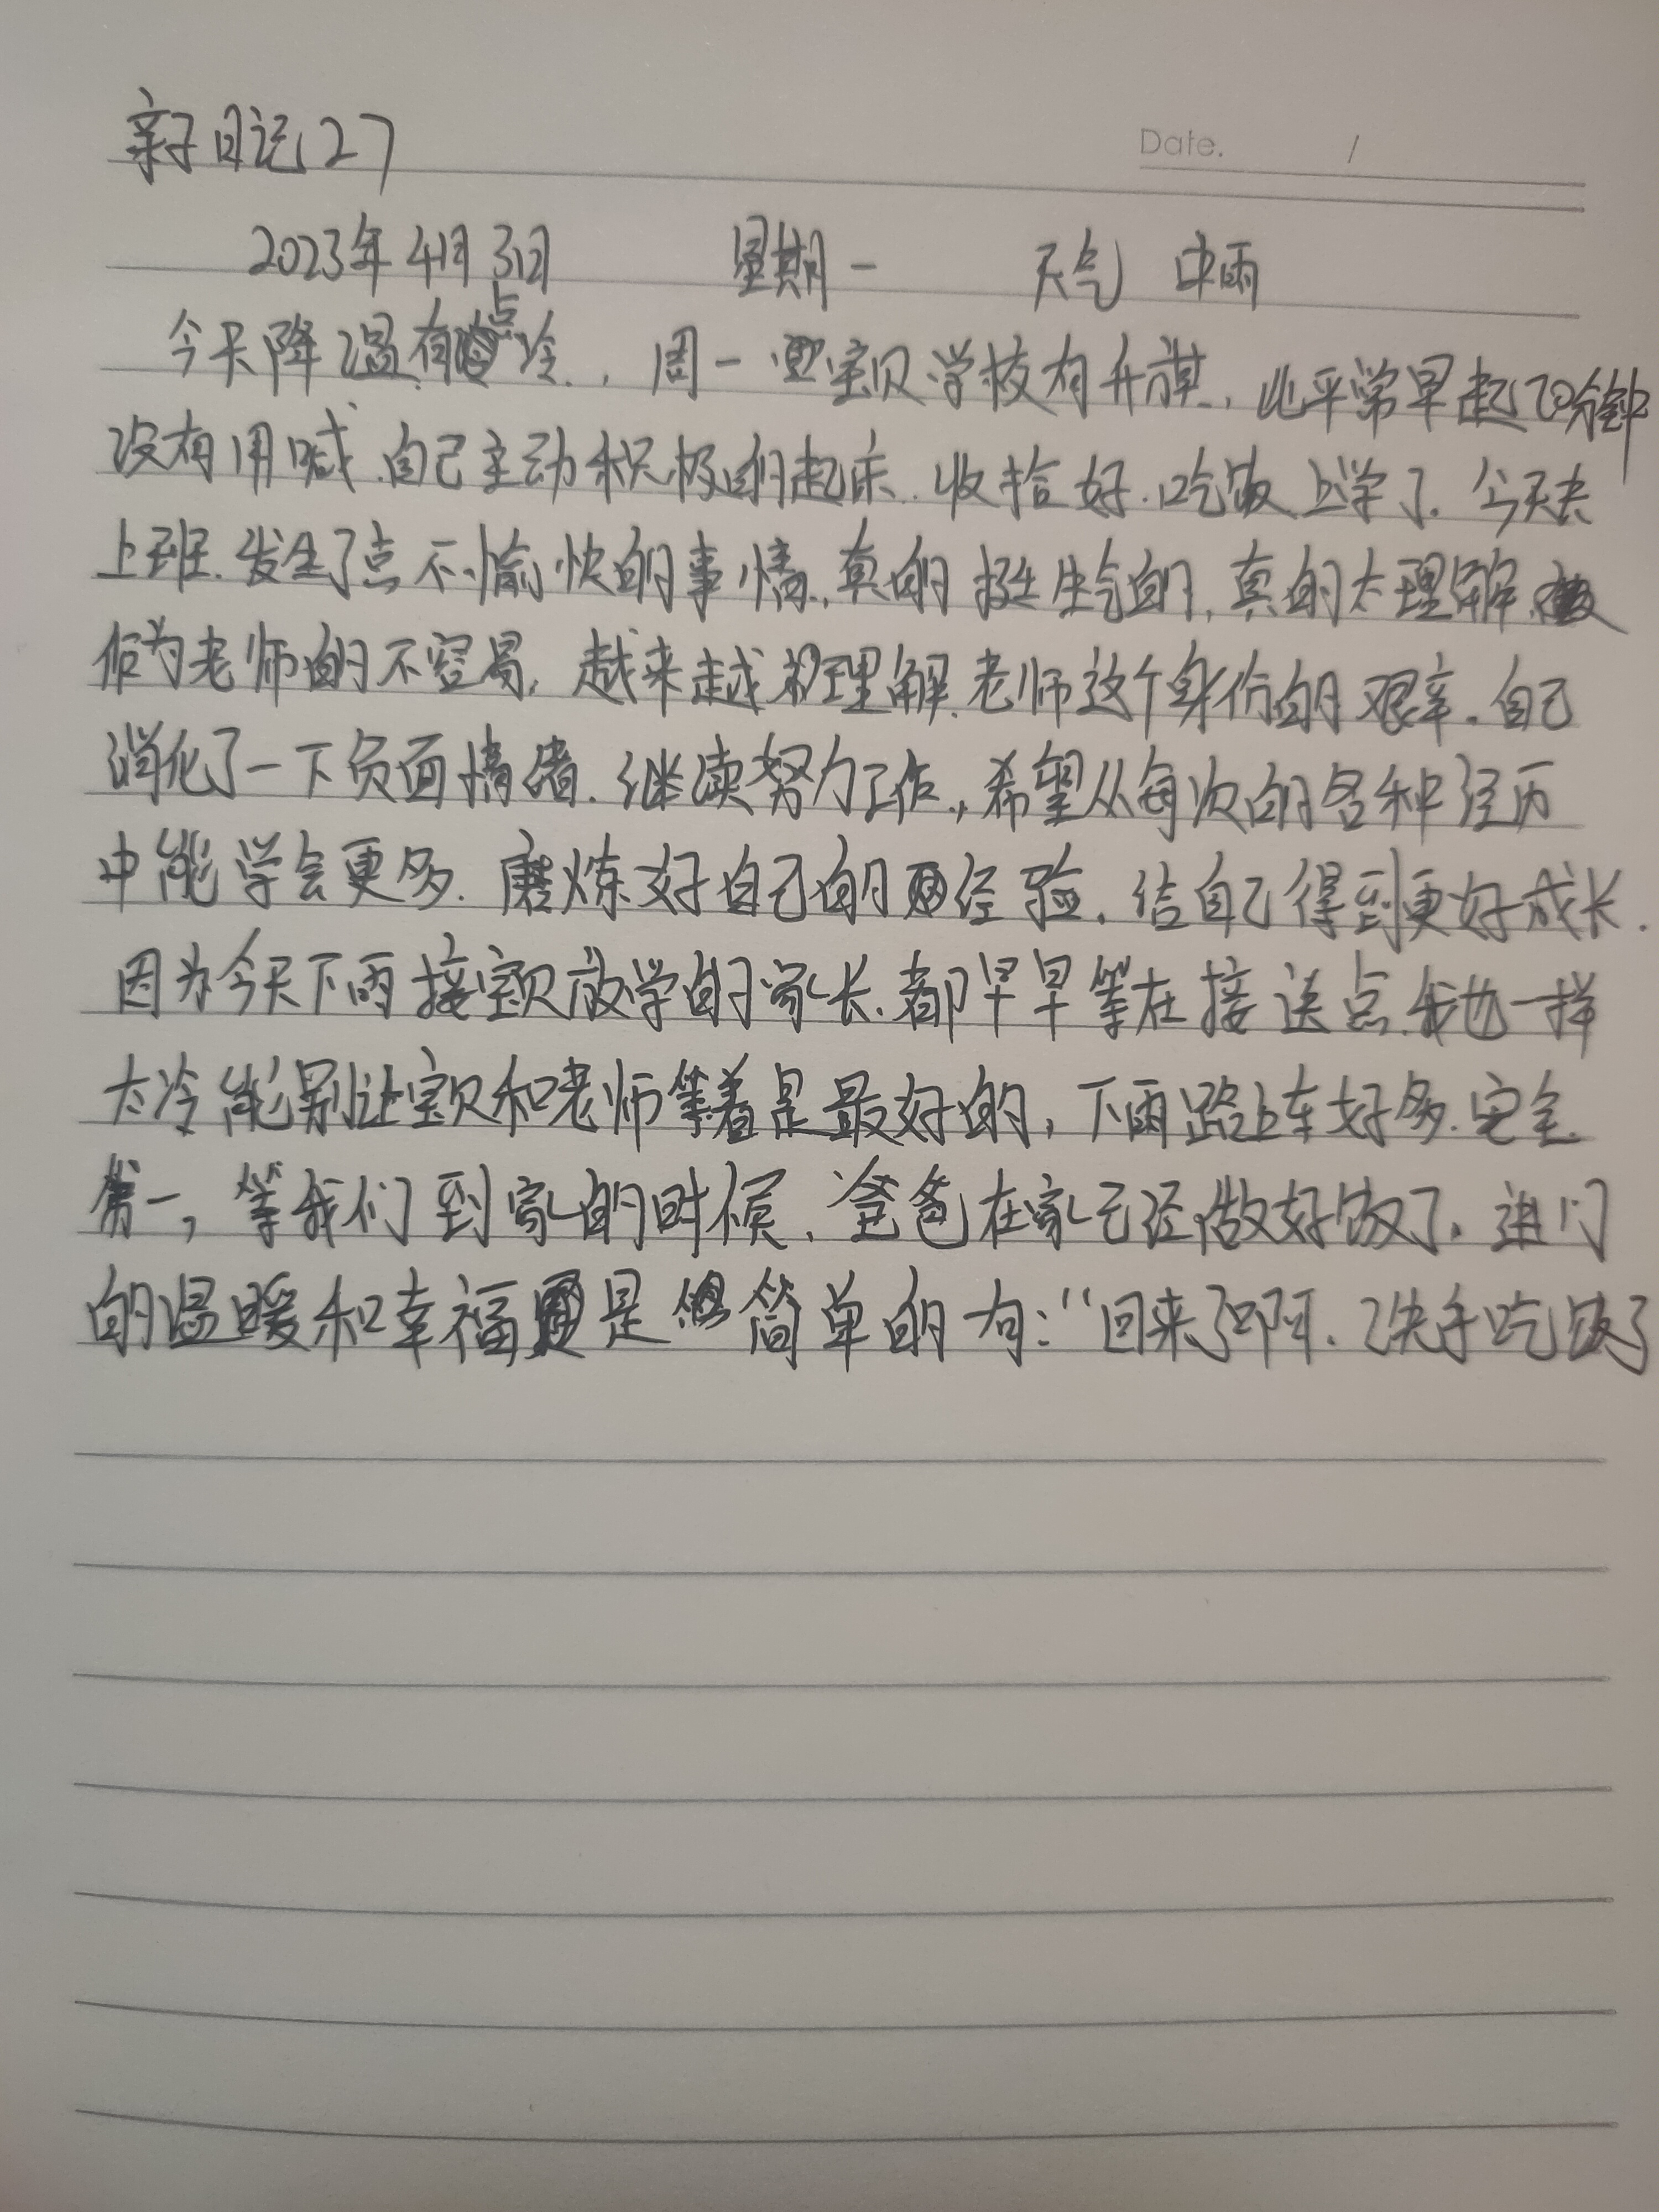 亲子日记27
Date. /
2023年4月3日 星期一 天气 中雨
今天降温有点冷，周一宝贝学校有升旗，比平常早起20分钟
没有用喊，自己主动积极的起床，收拾好，吃饭上学了，今天去
上班，发生了点不愉快的事情，真的挺生气的，真的太理解
作为老师的不容易，越来越理解老师这个身份的艰辛，自己
消化了一下负面情绪，继续努力工作，希望从每次的各种经历
中能学会更多，磨炼好自己的经验，给自己得到更好成长.
因为今天下雨接宝贝放学的家长，都早早等在接送点，我也一样
太冷能别让宝贝和老师等着是最好的，下雨路上车好多，安全
第一，等我们到家的时候，爸爸在家已经做好饭了，进门
的温暖和幸福是简单的句：“回来了啊，洗手吃饭了